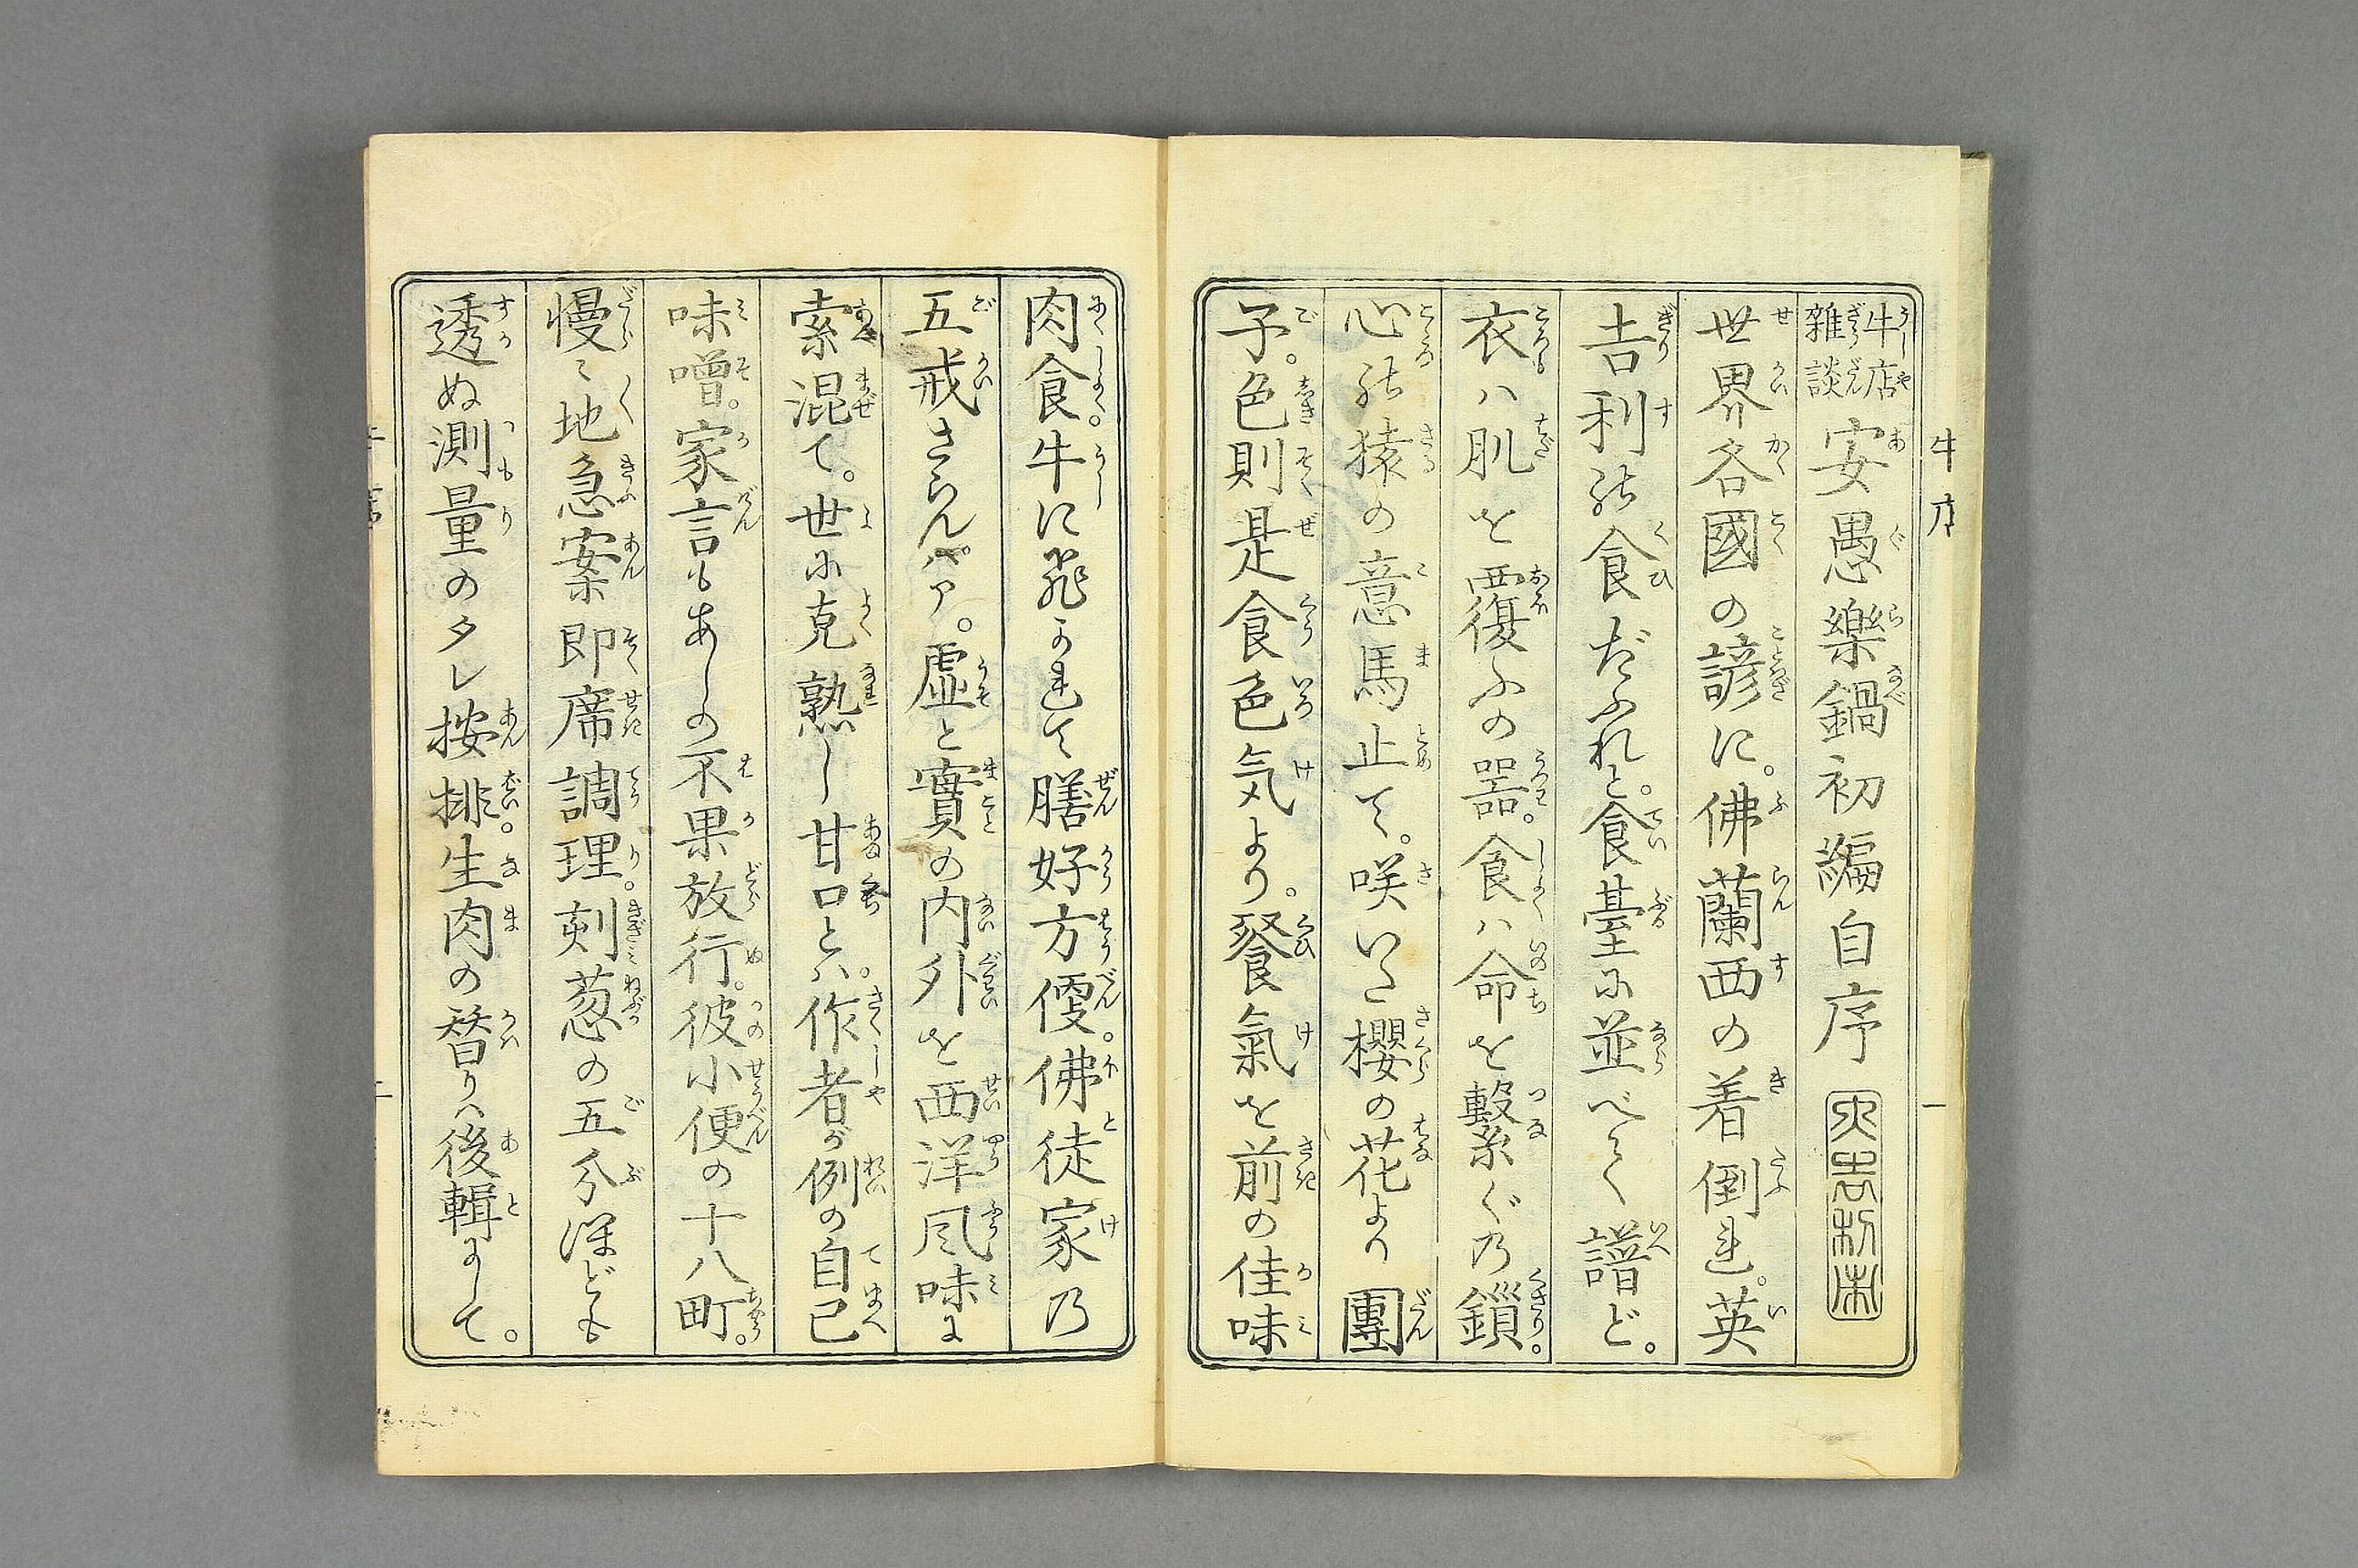 牛店雜談安愚樂鍋初編自序
世界各國の諺に。佛蘭西の着倒れ。英
吉利の食だふれと。食臺に並べて譜ど。
衣ハ肌を覆ふの器。食ハ命を繋ぐ乃鎖。
心の猿の意馬止て。咲いた櫻の花より團
子。色則是食色気より。餐氣を前の佳味
肉食。牛に飛られて膳好方便。佛徒家乃
五戒さらんパア。虚と實の内外を西洋風味に
索混て。世に克熟し甘口とハ。作者が例の自己
味噌。家言もあしの不果放行。彼小便の十八町。
慢〻地急案即席調理。刻葱の五分深ども
透ぬ測量のタレ按排。生肉の替りハ後輯にして。
牛序
一